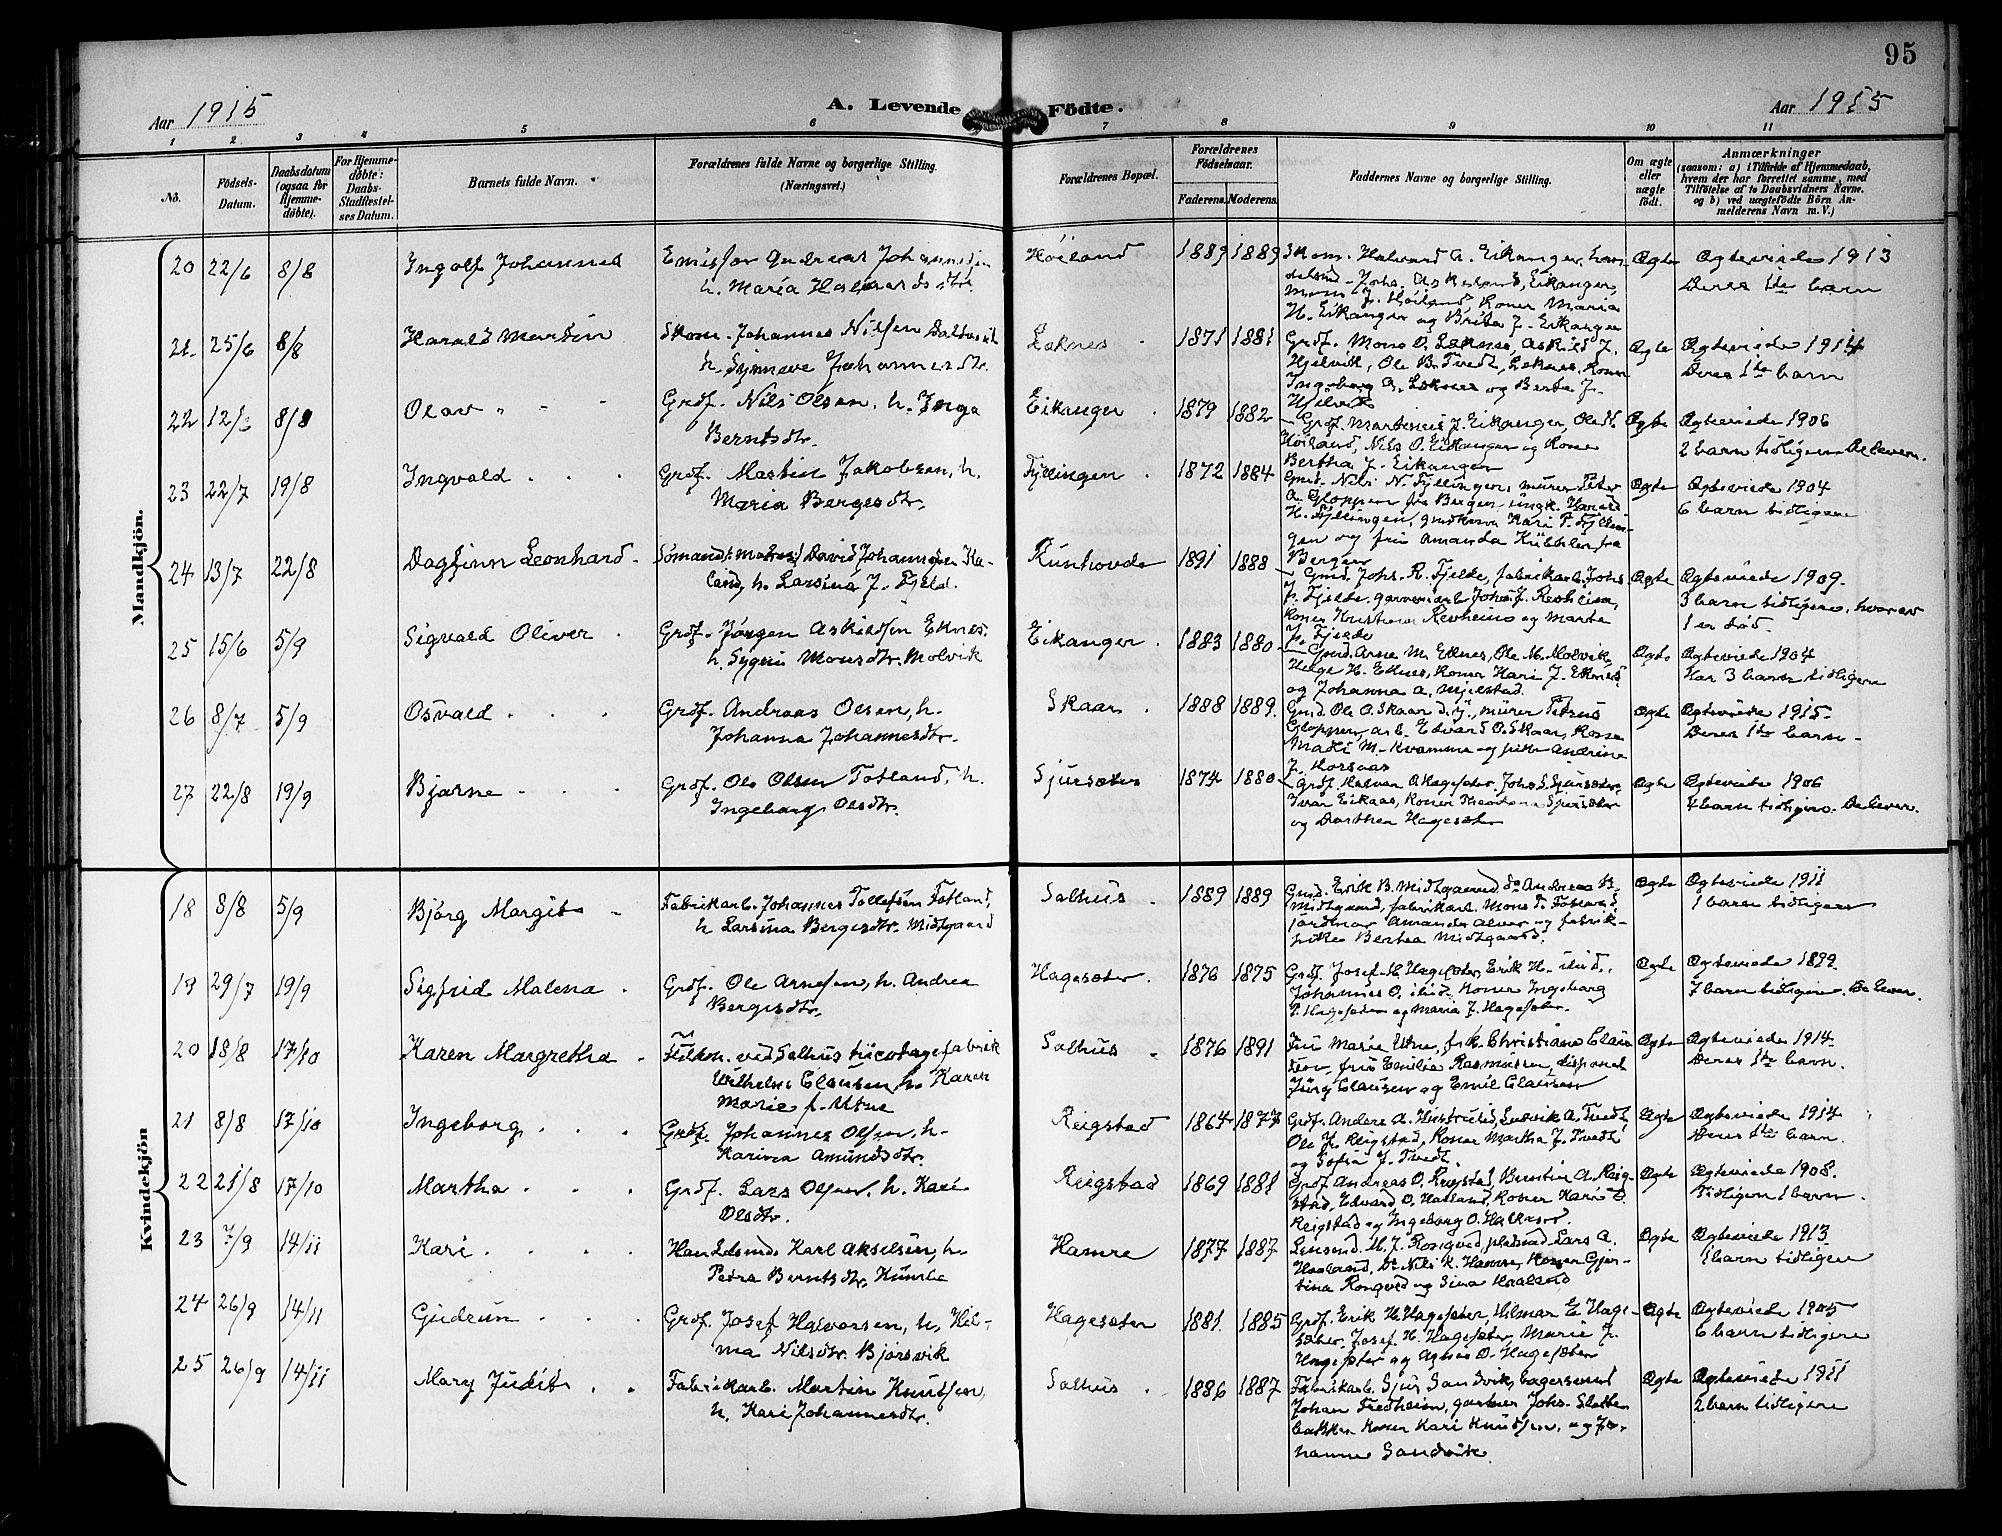 95
Aar 1915
A. Levende Födte.
Aar 1915
1 2 3 4 5 6 7 8 9 10 11
No.
Födsels-Datum.
Daabsdatum (ogsaa for Hjemme-døbte).
For Hjemme-døbte: Daabs-Stadfæstel-ses Datum.
Barnets fulde Navn.
Forældrenes fulde Navne og borgerlige Stilling.
(Næringsvei.)
Forældrenes Bopæl.
Forældrenes Födselsaar.
Faderens. Moderens.
Faddernes Navne og borgerlige Stilling.
Om ægte eller uægte födt.
Anmærkninger
(saasom: a) i Tilfælde af Hjemmedaab,
hvem der har forrettet samme, med
Tilføielse af to Daabsvidners Navne.
og b) ved uægtefödte Börn An-
melderens Navn m. V.)
Mandkjön.
20 22/6 8/8 Ingolf Johannes
Emissær Andreas Johannessen
h. Maria Halvardsdtr.
Höiland 1889 1889
Skom. Halvard A. Eikanger,
Johs. Askeland, Eikanger,
Mons J. Höiland, Koner Maria
H. Eikanger og Brita J. Eikanger
Ægte Ægteviede 1913
Deres 1te barn
21 25/6 8/8 Harald Martin
Skom. Johannes Nilsen
h. Synneve Johannesdtr.
Leknes 1871 1881
Grdf. Mons O. Leknes, Askild J.
Hjelvik, Ole B. Tvedt, Leknes, Koner
Ingeborg A. Leknes og Berta J.
Hjelvik
Ægte Ægteviede 1914
Deres 1te barn
22 12/6 8/8 Olav
Grdf. Nils Olsen, h. Inga
Berntsdtr.
Eikanger 1879 1882
Grdf. Martinus J. Eikanger, Ole
Höiland, Nils O. Eikanger og Kone
Bertha J. Eikanger
Ægte Ægteviede 1906
2 barn tidligere. De lever.
23 22/7 19/8 Ingvald
Grdf. Martin Jakobsen, h.
Maria Bergesdtr.
Fyllingen 1872 1884
Grdf. Nils N. Fyllingen, murer Peter
A. Gloppen fra Bergen, ungk. Harald
H. Fyllingen, grdkone Kari P. Fyllin-
gen og frk. Amanda fra
Bergen
Ægte Ægteviede 1904
6 barn tidligere
24 13/7 22/8 Dagfinn Leonhard
Sömand David Johannesen Ka-
land, h. Larsina J. Fjeld.
Runhovde 1891 1888
Grdf. Johs. R. Fjelde, fabrikarb. Johs.
J. Fjelde, garveriarb. Johs. J. Revheim,
Koner Revheim og Marta
J. Fjelde
Ægte Ægteviede 1909.
3 barn tidligere, hvorav
1 er död.
25 15/6 5/9 Sigvald Oliver
Grdf. Jörgen Askildsen Eknes,
h. Sygeri Monsdtr. Molvik
Eikanger 1883 1880
Grdf. Arne M. Eknes, Ole M. Molvik,
Helge H. Eknes, Koner Kari J. Eknes
og Johanna A. Mjelstad.
Ægte Ægteviede 1904
Har 3 barn tidligere
26 8/7 5/9 Osvald
Grdf. Andreas Olsen, h.
Johanna Johannesdtr.
Skaar 1888 1889
Grdf. Ole O. Skaar d.y., murer Petrus
Gloppen, arb. Edvard O. Skaar, Kone
Madli M. Kvamme og pike Andrine
J. Korsaas
Ægte Ægteviede 1915
Deres 1te barn
27 22/8 19/9 Bjarne
Grdf. Ole Olsen Totland, h.
Ingeborg Olsdtr.
Sjursæter 1874 1880
Grdf. Halvor A Hagesæter, Johs. S. Sjursæter,
Ivar Eikaas, Koner Sjursæter
og Dorthea Hagesæter
Ægte Ægteviede 1906
4 barn tidligere. De lever.
Kvindekjön
18 8/8 5/9 Bjørg Margit
Fabrikarb. Johannes Tollefsen Totland,
h. Larsina Bergesdtr. Midtgaard
Salhus 1889 1889
Grdf. Erik B. Midtgaard, do Andreas B.
Midtgaard, fabrikarb. Mons T. Totland,
jordmor Amanda Alver og fabrik-
pike Bertha Midtgaard.
Ægte Ægteviede 1911
1 barn tidligere
19 29/7 19/9 Sigfrid Malena
Grdf. Ole Arnesen, h. Andrea
Bergesdtr.
Hagesæter 1876 1875
Grdf. Josef H. Hagesæter, Erik H. ibid.,
Johannes O. ibid, Koner Ingeborg
Hagesæter og Maria J. Hagesæter
Ægte Ægteviede 1899
7 barn tidligere. De lever.
20 18/8 17/10 Karen Margretha
ved Salhus tricotagefabrik
Wilhelm Clausen, h. Karen
Marie f. Utne
Salhus 1876 1891
Fru Marie Utne, frk. Christiane Clau-
sen, frue Emilie Rasmussen, disponent
Jürg Clausen og Emil Clausen
Ægte Ægteviede 1914
Deres 1te barn.
21 8/8 17/10 Ingeborg
Grdf. Johannes Olsen, h.
Karina Amundsdtr.
Reigstad 1864 1877
Grdf. Anders A. Ludvik A. Tvedt,
Ole H. Reigstad, Koner Martha J. Tvedt
og Sofia J. Tvedt.
Ægte Ægteviede 1914
Deres 1te barn.
22 21/8 17/10 Martha
Grdf. Lars Olsen, h. Kari
Olsdtr.
Reigstad 1869 1881
Grdf. Andreas O. Reigstad, Berntin A. Reig-
stad, Edvard O. Hatland, Koner Kari O.
Reigstad og Ingeborg O.
Ægte Ægteviede 1908.
Tidligere 1 barn.
23 7/9 14/11 Kari
Handelsmd. Karl Akselsen, h.
Petra Berntsdtr. Kumle
Hamre 1877 1887
Lensmd. M. J. Rongved, pladsmd Lars A.
Haaland, Do Nils K. Hamre, Koner Gjer-
tina Rongved og Sina
Ægte Ægteviede 1913
1 barn tidligere
24 26/9 14/11 Gudrun
Grdf. Josef Halvorsen, h. Hel-
ma Nilsdtr. Bjørsvik
Hagesæter 1881 1885
Grdf. Erik H. Hagesæter, Hilmar E. Hage-
sæter, Josef H. Hagesæter, Marie J.
Hagesæter og Agnes O. Hagesæter
Ægte Ægteviede 1905
6 barn tidligere
25 26/9 14/11 Mary Judit
Fabrikarb. Martin Knudsen,
h. Kari Johannesdtr.
Salhus 1886 1887
Fabrikarb. Sjur Sandvik, bagersvend
Johan Fredheim, gartner Johs. Slotte-
bakken, Koner Kari Knudsen, og Jo-
hanne Sandvik.
Ægte Ægteviede 1911
2 barn tidligere